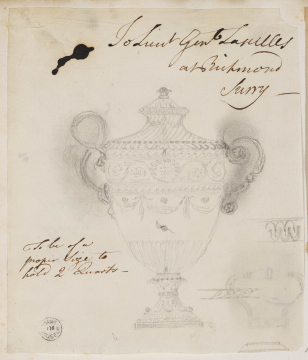 To Lieut Genl. Lasselles
at Richmond
Surry —
To be of a
proper Size to
hold 2 Quarts —